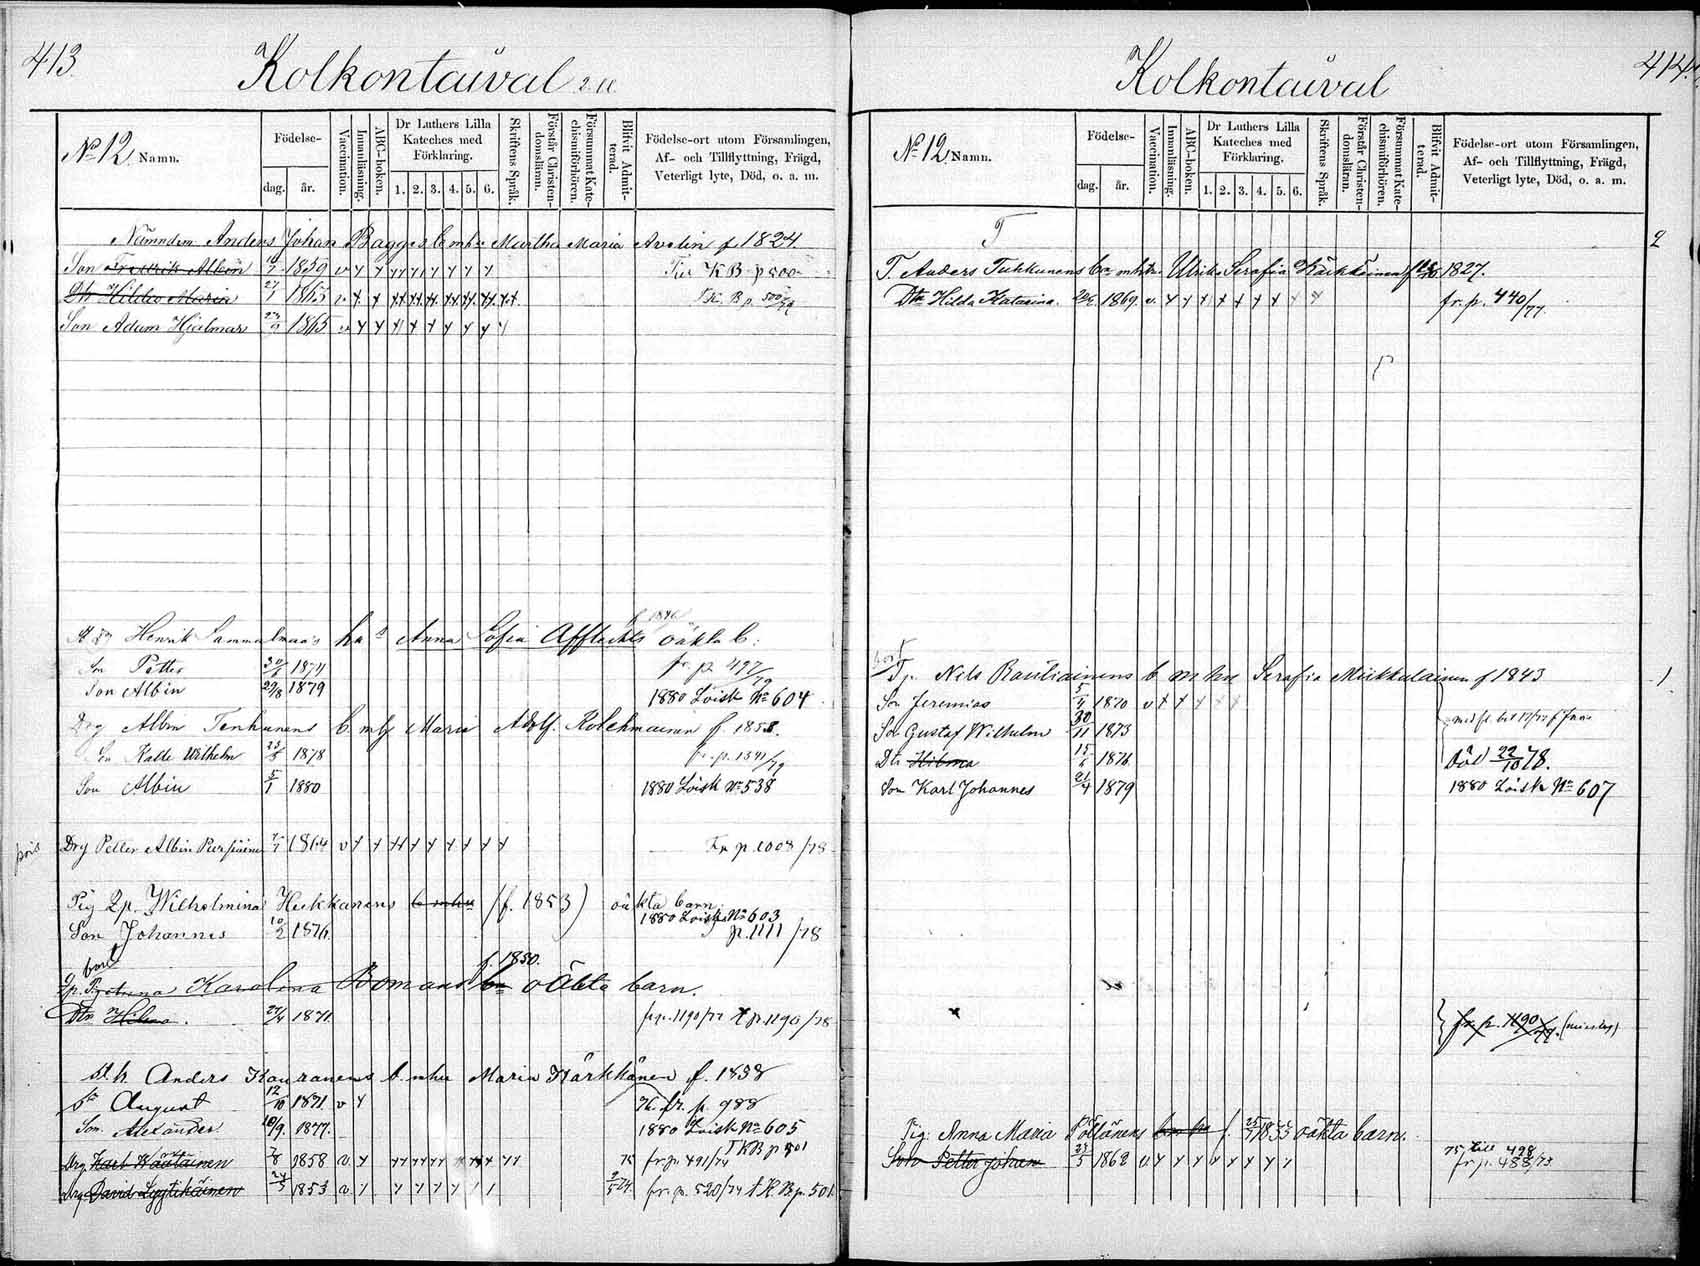 413.
Kolkontaival
No 12 Namn.
Födelse-
dag. år.
Vaccination.
Innanläsning.
ABC-boken.
Dr Luthers Lilla Kateches med Förklaring.
1. 2. 3. 4. 5. 6.
Skriftens Språk.
Förstår Christendomsläran.
Försummat Katechismiförhören.
Blifvit Admitterad.
Födelse-ort utom Församlingen,
Af- och Tillflyttning, Frägd,
Veterligt lyte, Död, o. a. m.
Nämndem Anders Johan Bagges b mhu Martha Maria Avelin f 1824.
Son Fredrik Albin 1859 v K B p 500
Dtr Hilda Maria 1863 v K. B p. 500
Son Adam Hjalmar 1865 v
Henrik Sammalmaa's Anna Sofia Afflechts oäkta b.
Son Petter 30/6 1874 fr. p. 497/79
Son Albin 29/8 1879 1880 Loisk No 604
Drg Albin Tenhunens b. mh Maria Adolf. Kolehmainen f. 1858.
Son Kalle Wilhelm 23/5 1878 fr. p. 1341/79
Son Albin 5/1 1880 1880 Loisk No 538
pois Drg Petter Albin Pursiainen 1864 v Fr p. 1008/78
Pig Lp. Wilhelmina Hukkanens b mhu (f. 1853) oäkta barn.
1880 Loisk No 603
Son Johannes 10/2 1876. p. 1111/78
bort f. 1850.
Lp. Karolina Bomans oäkta barn.
Dtr Hilma. 1871 fr p. 1190/77 t p. 1190/78
St. h. Anders Kauranens b. mhu Maria Härkkänen f. 1838
Sn August 12/10 1871 v fr. p. 988
Son Alexander 10/9. 1877. 1880 Loisk No 605
Drg Karl Väätäinen 7/8 1858 v 75 fr. p. 491/74 T K B p 501
Drg David Lyytikäinen 1853 v fr. p. 520/74 t K. B p. 501
414.
Kolkontaival
No 12 Namn.
Födelse-
dag. år.
Vaccination.
Innanläsning.
ABC-boken.
Dr Luthers Lilla Kateches med Förklaring.
1. 2. 3. 4. 5. 6.
Skriftens Språk.
Förstår Christendomsläran.
Försummat Katechismiförhören.
Blifvit Admitterad.
Födelse-ort utom Församlingen,
Af- och Tillflyttning, Frägd,
Veterligt lyte, Död, o. a. m.
T 2
T. Anders Tukkunens b. mhu Ulrika Serafia Kärkkäinen 1827.
Dtr Hilda Katarina. 1869. v. fr. p. 440/77.
bort
Tp. Nils Rautiainens b m hu Serafia Miekkalainen f 1843 1.
Son Jeremias 5/4 1870 v
Son Gustaf Wilhelm 30/11 1873
Dtr Hilma 15/6 1876 Död 22/10 78.
Son Karl Johannes 21/4 1879 1880 Loisk No 607
fr. p. 1190/77.
Pig. Anna Maria Pöllänens f. 1835 oäkta barn.
Son Petter Johan 23/5 1862 v. 75 till 498
fr. p. 488/73